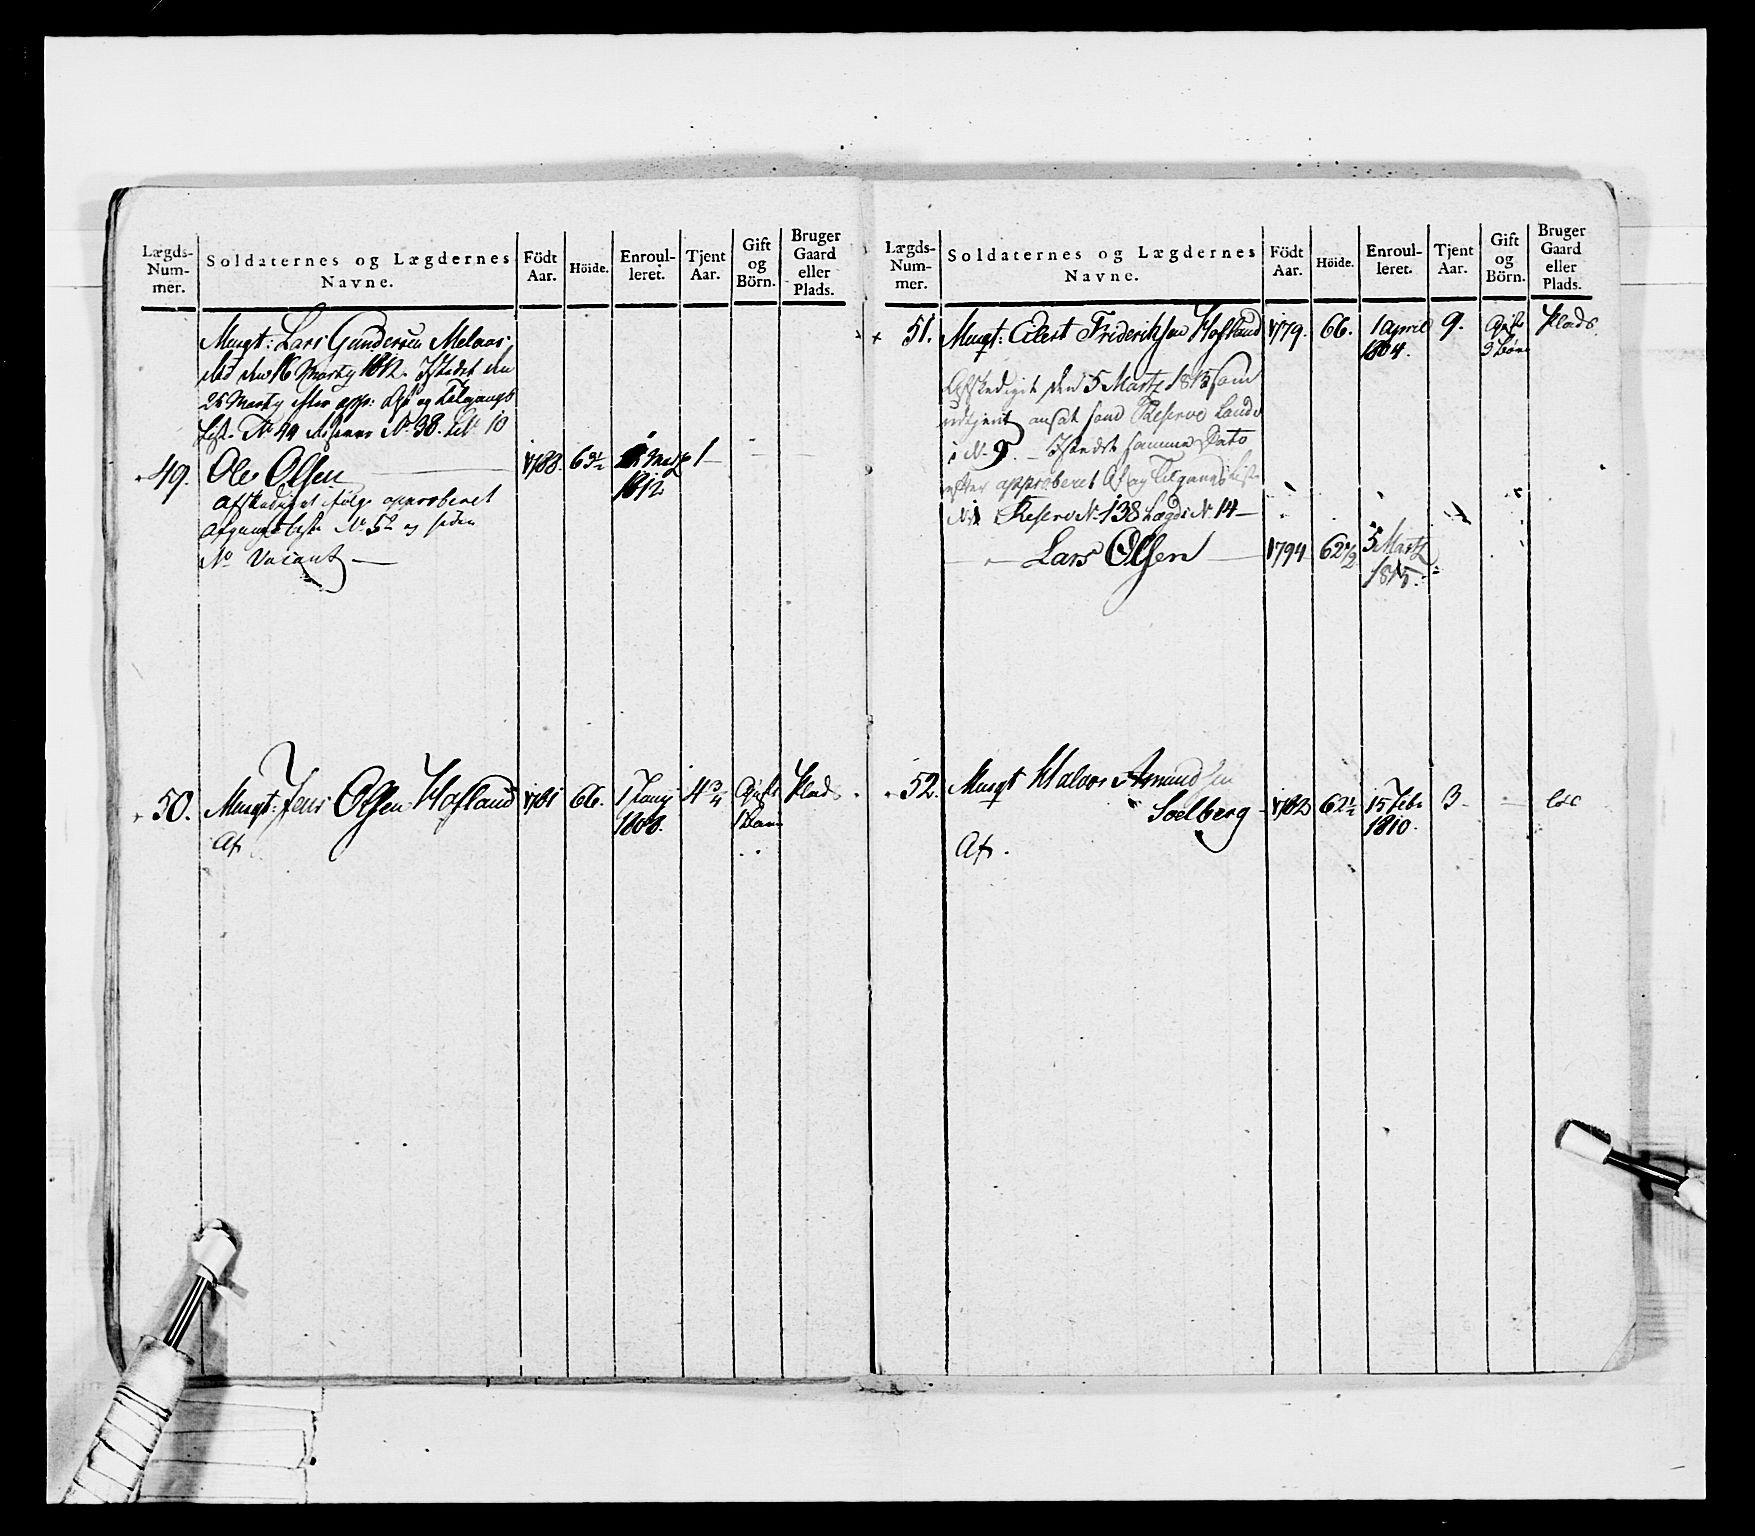 Lægds-
Num-
mer.
Soldaternes og Lægdernes
Navne.
Födt
Aar.
Höide.
Enroul-
leret.
Tjent
Aar.
Gift
og
Börn.
Bruger
Gaard
eller
Plads.
Musqt: Lars Gundersen Melaas
den 16 Martz 1812. Istedet den
25 Martz efter app: Af og Tilgangs
Liste No 44 No 38. 10
49. Ole Olsen 1788 63½ Martz 1
1812
Afskediget ifølge approberet
Afgangs Liste No 52 og siden
No Vacant
50. Musqt: Jens Olsen Hafland 1781 66. 1 Janu 4¾ Gift Plads
1808. 1 Barn
Af
Lægds-
Num-
mer.
Soldaternes og Lægdernes
Navne.
Födt
Aar.
Höide.
Enroul-
leret.
Tjent
Aar.
Gift
og
Börn.
Bruger
Gaard
eller
Plads.
51. Musqt: Eilert Friderichsen Hofland 1779. 66. 1 April 9. Gift Plads
1804. 2 Børn
Afskediget den 5 Martz 1815 som
udtjent ansat som Reserve Lands
i No 9. Istedet samme Dato
efter approberet Af og Tilgangs Liste
No 1 Reserve No 138 Lægds No 14
Lars Olsen 1794 62½ 5 Martz
1815.
52. Musqt Halvor Asmundsen
Soelberg 1783 62½ 15 Febr 3
1810.
Af.